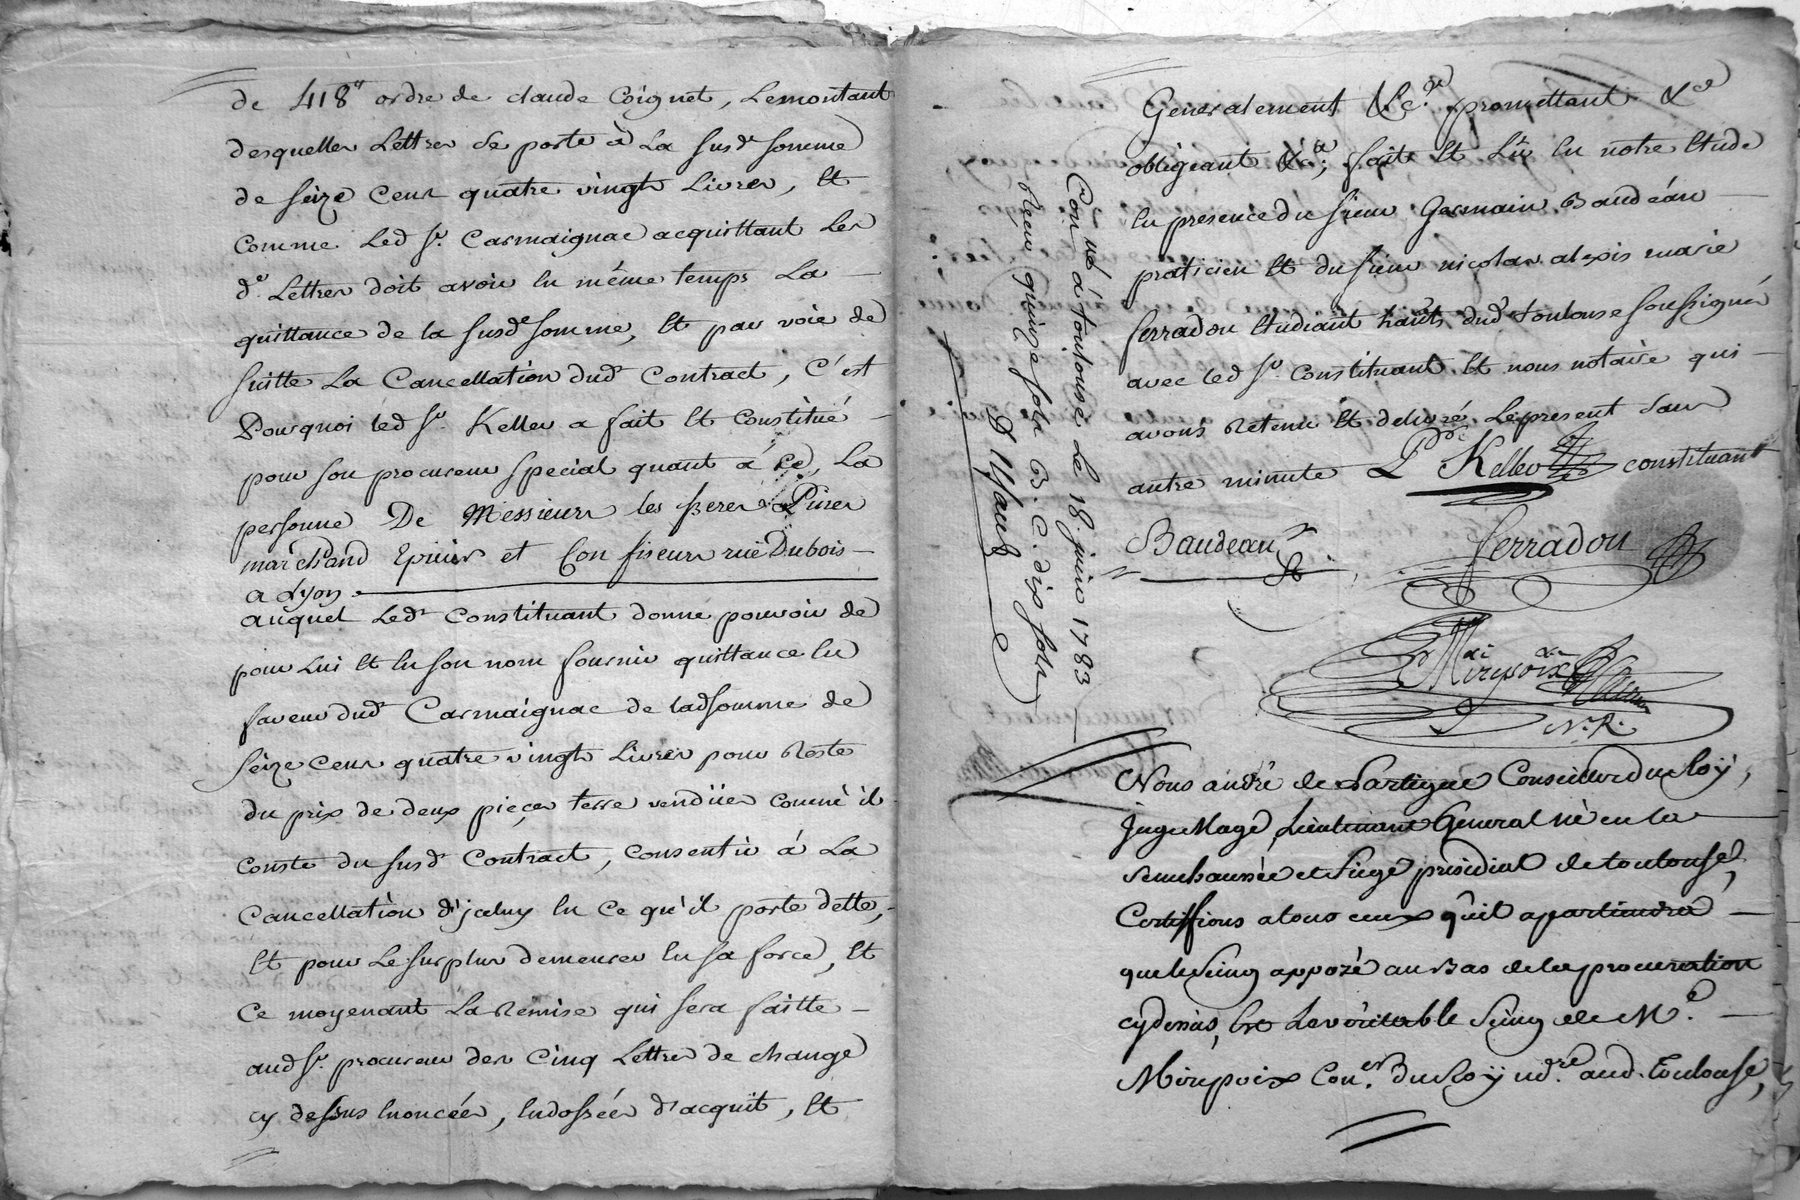 de 418ᵗᵗ ordre de claude Coignet, Lemontant
desquelles Lettres se porte à La susdᵉ somme
de seize Cens quatre vingts Livres, et
Comme Led Sʳ. Carmaignac acquittant Les
dᵉ. Lettres doit avoir en même temps La
quittance de la susdᵉ somme, et par voie de
suitte La Cancellation dudᵗ Contract, C'est
Pourquoi led Sʳ. Keller a fait et Constitué
pour son procureur special quant à ce, La
personne De Messieurs les freres Piner
marchand Epicier et Confiseurs rue Dubois
a Lyon.
auquel Ledᵗ Constituant donne pouvoir de
pour Lui et en son nom fournir quittance en
faveur dudᵗ Carmaignac de ladᵉ somme de
seize Cens quatre vingts Livres pour Reste
du prix de deux pièces terre vendües comme il
conste du susdᵗ Contract, Consentir à La
Cancellation d'jceluy en Ce qu'il porte dette,
et pour Le surplus demeurer en sa force, et
Ce moyenant La Remise qui sera faitte
aud Sʳ. procureur des Cinq Lettres de change
cy dessus enoncées, endossées d'acquit, et
Generalement &cᵃ. promettant &cᵃ
obligeant &cᵃ; faite et Lüe en notre Etude
en presence du sieur Germain Baudéan
praticien et du sieur nicolas alexis marie
ferradou etudiant haᵗˢ dudᵗ toulouse soussignés
avec led Sʳ. Constituant et nous notaire qui
avons Retenu et delivré Le present sans
autre minute Pʳᵉ Keller constituant
Baudean ferradou
Mirepoix
Nʳᵉ R.
Conᵗʳᵒˡᵉ́ à toulouse Le 18. juin 1783
Reçu quinze sols B. C. dix sols
Nous andré de Lartigue Conseiller du Roy,
Juge Mage, Lieutenant General né en la
Senechaussée et Siege présidial de toulouse,
Certiffions a tous ceux qu'il apartiendra
que le Seing apposé au Bas de la procuration
cy dessus, Est Le véritable Seing de Mᵉ.
Mirepoix Conᵉʳ. du Roy nᵒᵗʳᵉ. aud. toulouse,